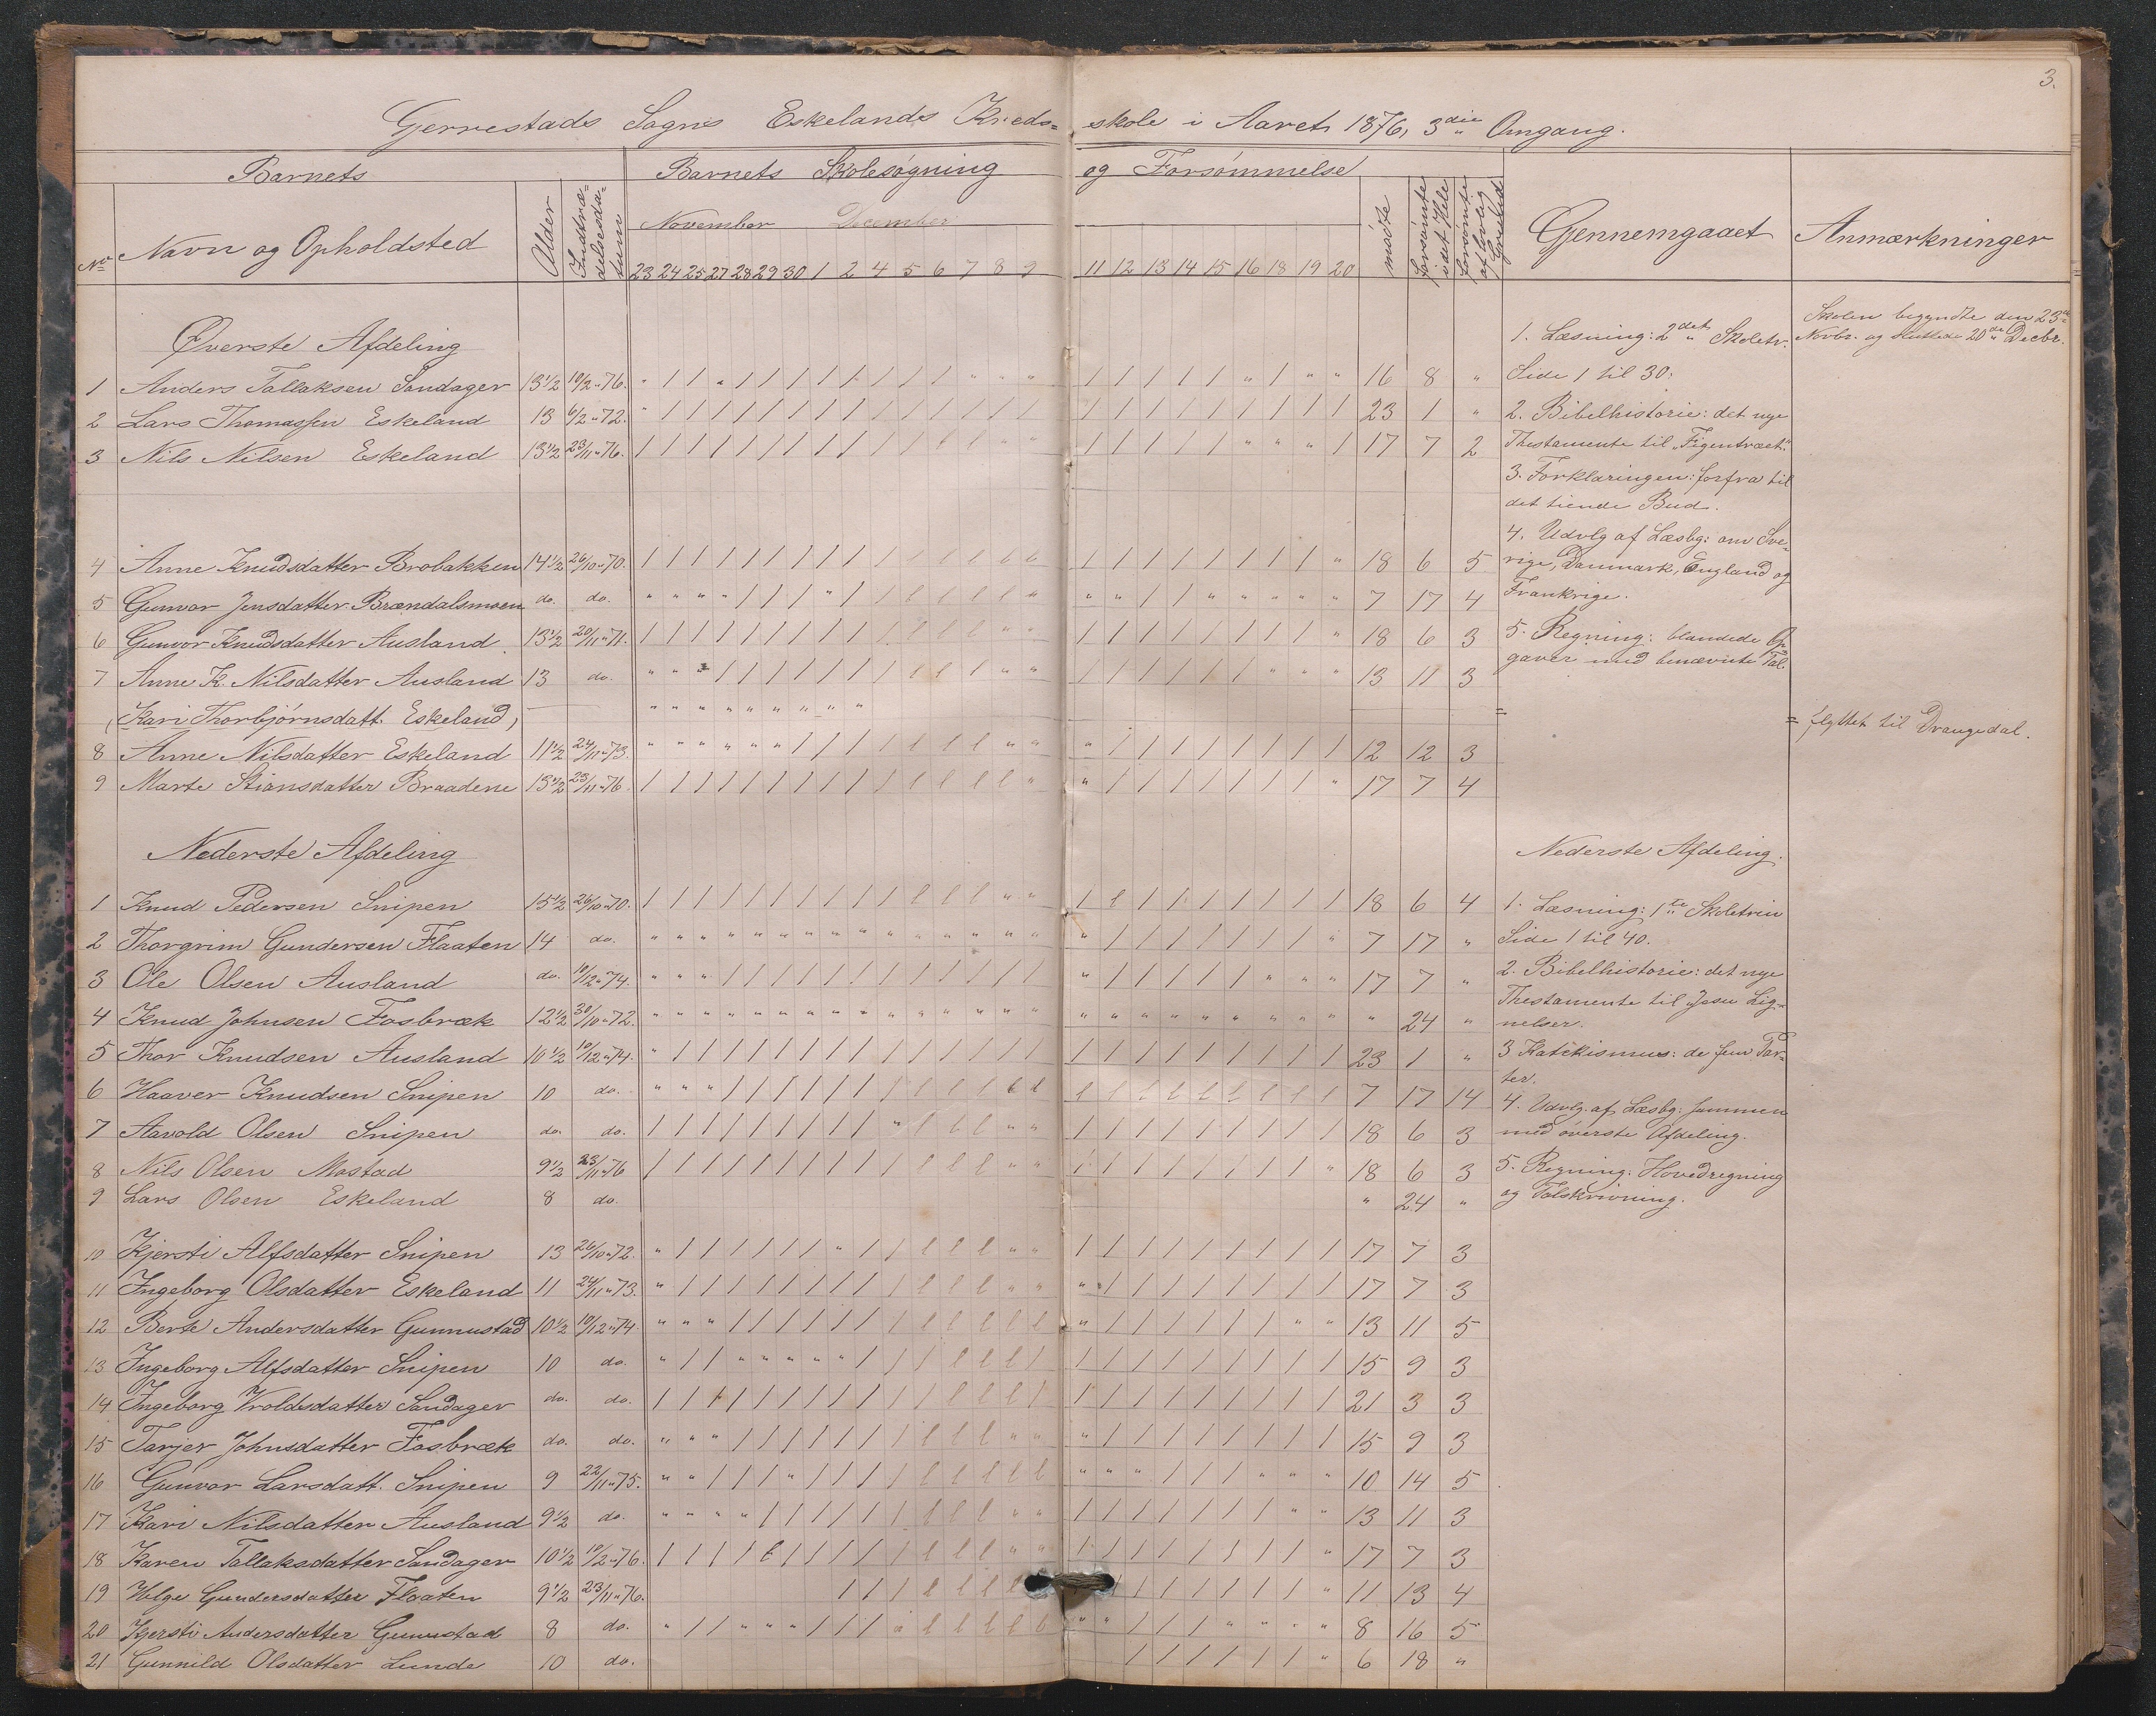 3.
Gjerrestads Sogns Eskelands Kreds= skole i Aaret 1876, 3die Omgang.
Barnets Barnets Skolesøgning og Forsømmelse
No Navn og Opholdsted Alder Indtræ= delsesda= tum November December mødte forsømte idet Hele forsømte af lovlig Gjennemgaaet Anmærkninger
23 24 25 27 28 29 30 1 2 4 5 6 7 8 9 11 12 13 14 15 16 18 19 20
Øverste Afdeling
1 Anders Tallaksen Sandager 13 1/2 10/2 " 76. " / / " / / / / / / / / " " " / / / / / " / " " 16 8 "
2 Lars Thomassen Eskeland 13 6/2 " 72. " / / / / / / / / / / / / / / / / / / / / / / / 23 1 "
3 Nils Nilsen Eskeland 13 1/2 23/11 " 76. 17 7 2
4 Anne Knudsdatter Brobakken 14 1/2 26/10 " 70. 18 6 5
5 Gunvor Jensdatter Brændalsmoen do. do. 7 17 4
6 Gunvor Knudsdatter Ausland 13 1/2 20/11 " 71. 18 6 3
7 Anne K. Nilsdatter Ausland 13 do. 13 11 3
(Kari Thorbjørnsdatt. Eskeland)
8 Anne Nilsdatter Eskeland 11 1/2 24/11 " 73. 12 12 3
9 Marte Stiansdatter Braadene 13 1/2 23/11 " 76. 17 7 4
Nederste Afdeling
1 Knud Pedersen Snipen 15 1/2 26/10 " 70. 18 6 4
2 Thorgrim Gundersen Flaaten 14 do. 7 17 "
3 Ole Olsen Ausland do. 10/12 " 74. 17 7 "
4 Knud Johnsen Fosbræk 12 1/2 30/10 " 72. " 24 "
5 Thor Knudsen Ausland 10 1/2 10/12 " 74. 23 1 "
6 Haaver Knudsen Snipen 10 do. 7 17 14
7 Aavold Olsen Snipen do. do. 18 6 3
8 Nils Olsen Mostad 9 1/2 23/11 " 76 18 6 3
9 Lars Olsen Eskeland 8 do. " 24 "
10 Kjersti Alfsdatter Snipen 13 26/10 " 72. 17 7 3
11 Ingeborg Olsdatter Eskeland 11 24/11 " 73. 17 7 3
12 Berte Andersdatter Gunnustad 10 1/2 10/12 " 74. 13 11 5
13 Ingeborg Alfsdatter Snipen 10 do. 15 9 3
14 Ingeborg Vroldsdatter Sandager do. do. 21 3 3
15 Tarjer Johnsdatter Fosbræk do. do. 15 9 3
16 Gunvor Larsdatt. Snipen 9 22/11 " 75. 10 14 5
17 Kari Nilsdatter Ausland 9 1/2 do. 13 11 3
18 Karen Tallaksdatter Sandager 10 1/2 10/2 " 76. 17 7 3
19 Helge Gundersdatter Flaaten 9 1/2 23/11 " 76. 11 13 4
20 Kjersti Andersdatter Gunnustad 8 do. 8 16 5
21 Gunnild Olsdatter Lunde 10 do. 6 18 "
1. Læsning: 2det Skoletr.
Side 1 til 30:
2. Bibelhistorie: det nye
Thestamente til "Figentræet."
3. Forklaringen: forfra til
det tiende Bud.
4. Udvlg af Læsbg: om Sve=
rige, Danmark, England og
Frankrige.
5. Regning: blandede Op=
gaver med benævnte Tal.
Nederste Afdeling.
1. Læsning: 1te Skoletrin
Side 1 til 40.
2. Bibelhistorie: det nye
Thestamente til Jesu Lig=
nelser.
3 Katekismus: de fem Par=
ter.
4. Udvlg. af Læsbg: sammen
med øverste Afdeling.
5. Regning: Hovedregning
og Talskrivning.
Skolen begyndte den 23de
Novbr. og sluttede 20de Decbr.
= flyttet til Drangedal.